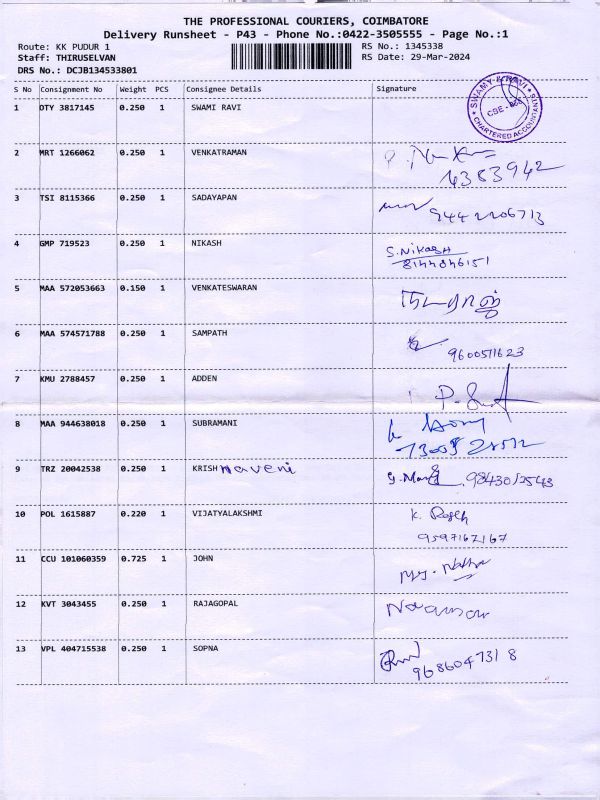 THE PROFESSIONAL COURIERS, COIMBATORE
Delivery Runsheet - P43 - Phone No.:0422-3505555 - Page No.:1
Route: KK PUDUR 1 RS No.: 1345338
Staff: THIRUSELVAN RS Date: 29-Mar-2024
DRS No.: DCJB134533801
S No Consignment No Weight PCS Consignee Details Signature
1 DTY 3817145 0.250 1 SWAMI RAVI
SWAMY & RAVI CBE CHARTERED ACCOUNTANTS
2 MRT 1266062 0.250 1 VENKATRAMAN
4383942
3 TSI 8115366 0.250 1 SADAYAPAN
4 GMP 719523 0.250 1 NIKASH S.NIKASH
8144846151
5 MAA 572053663 0.150 1 VENKATESWARAN நடராஜ்
6 MAA 574571788 0.250 1 SAMPATH
9600571623
7 KMU 2788457 0.250 1 ADDEN
8 MAA 944638018 0.250 1 SUBRAMANI
9 TRZ 20042538 0.250 1 KRISH naveni
10 POL 1615887 0.220 1 VIJATYALAKSHMI
9597167167
11 CCU 101060359 0.725 1 JOHN
12 KVT 3043455 0.250 1 RAJAGOPAL
13 VPL 404715538 0.250 1 SOPNA
9686047318